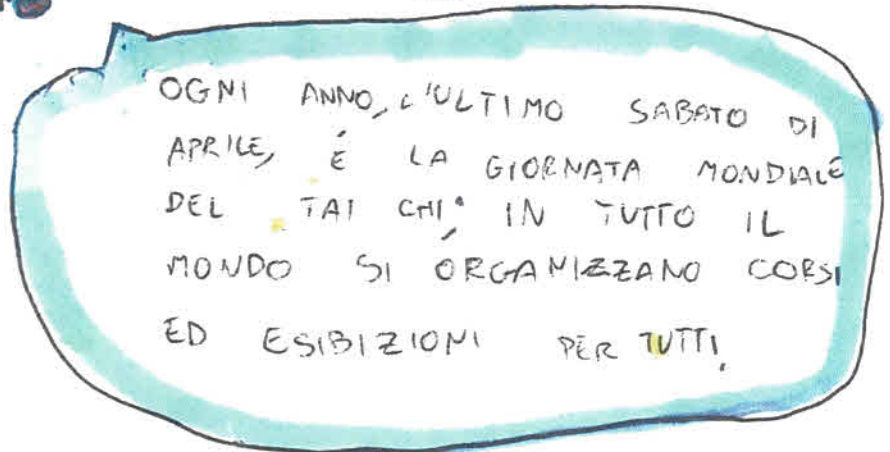 OGNI ANNO, L'ULTIMO SABATO DI
APRILE, È LA GIORNATA MONDIALE
DEL TAI CHI. IN TUTTO IL
MONDO SI ORGANIZZANO CORSI
ED ESIBIZIONI PER TUTTI.